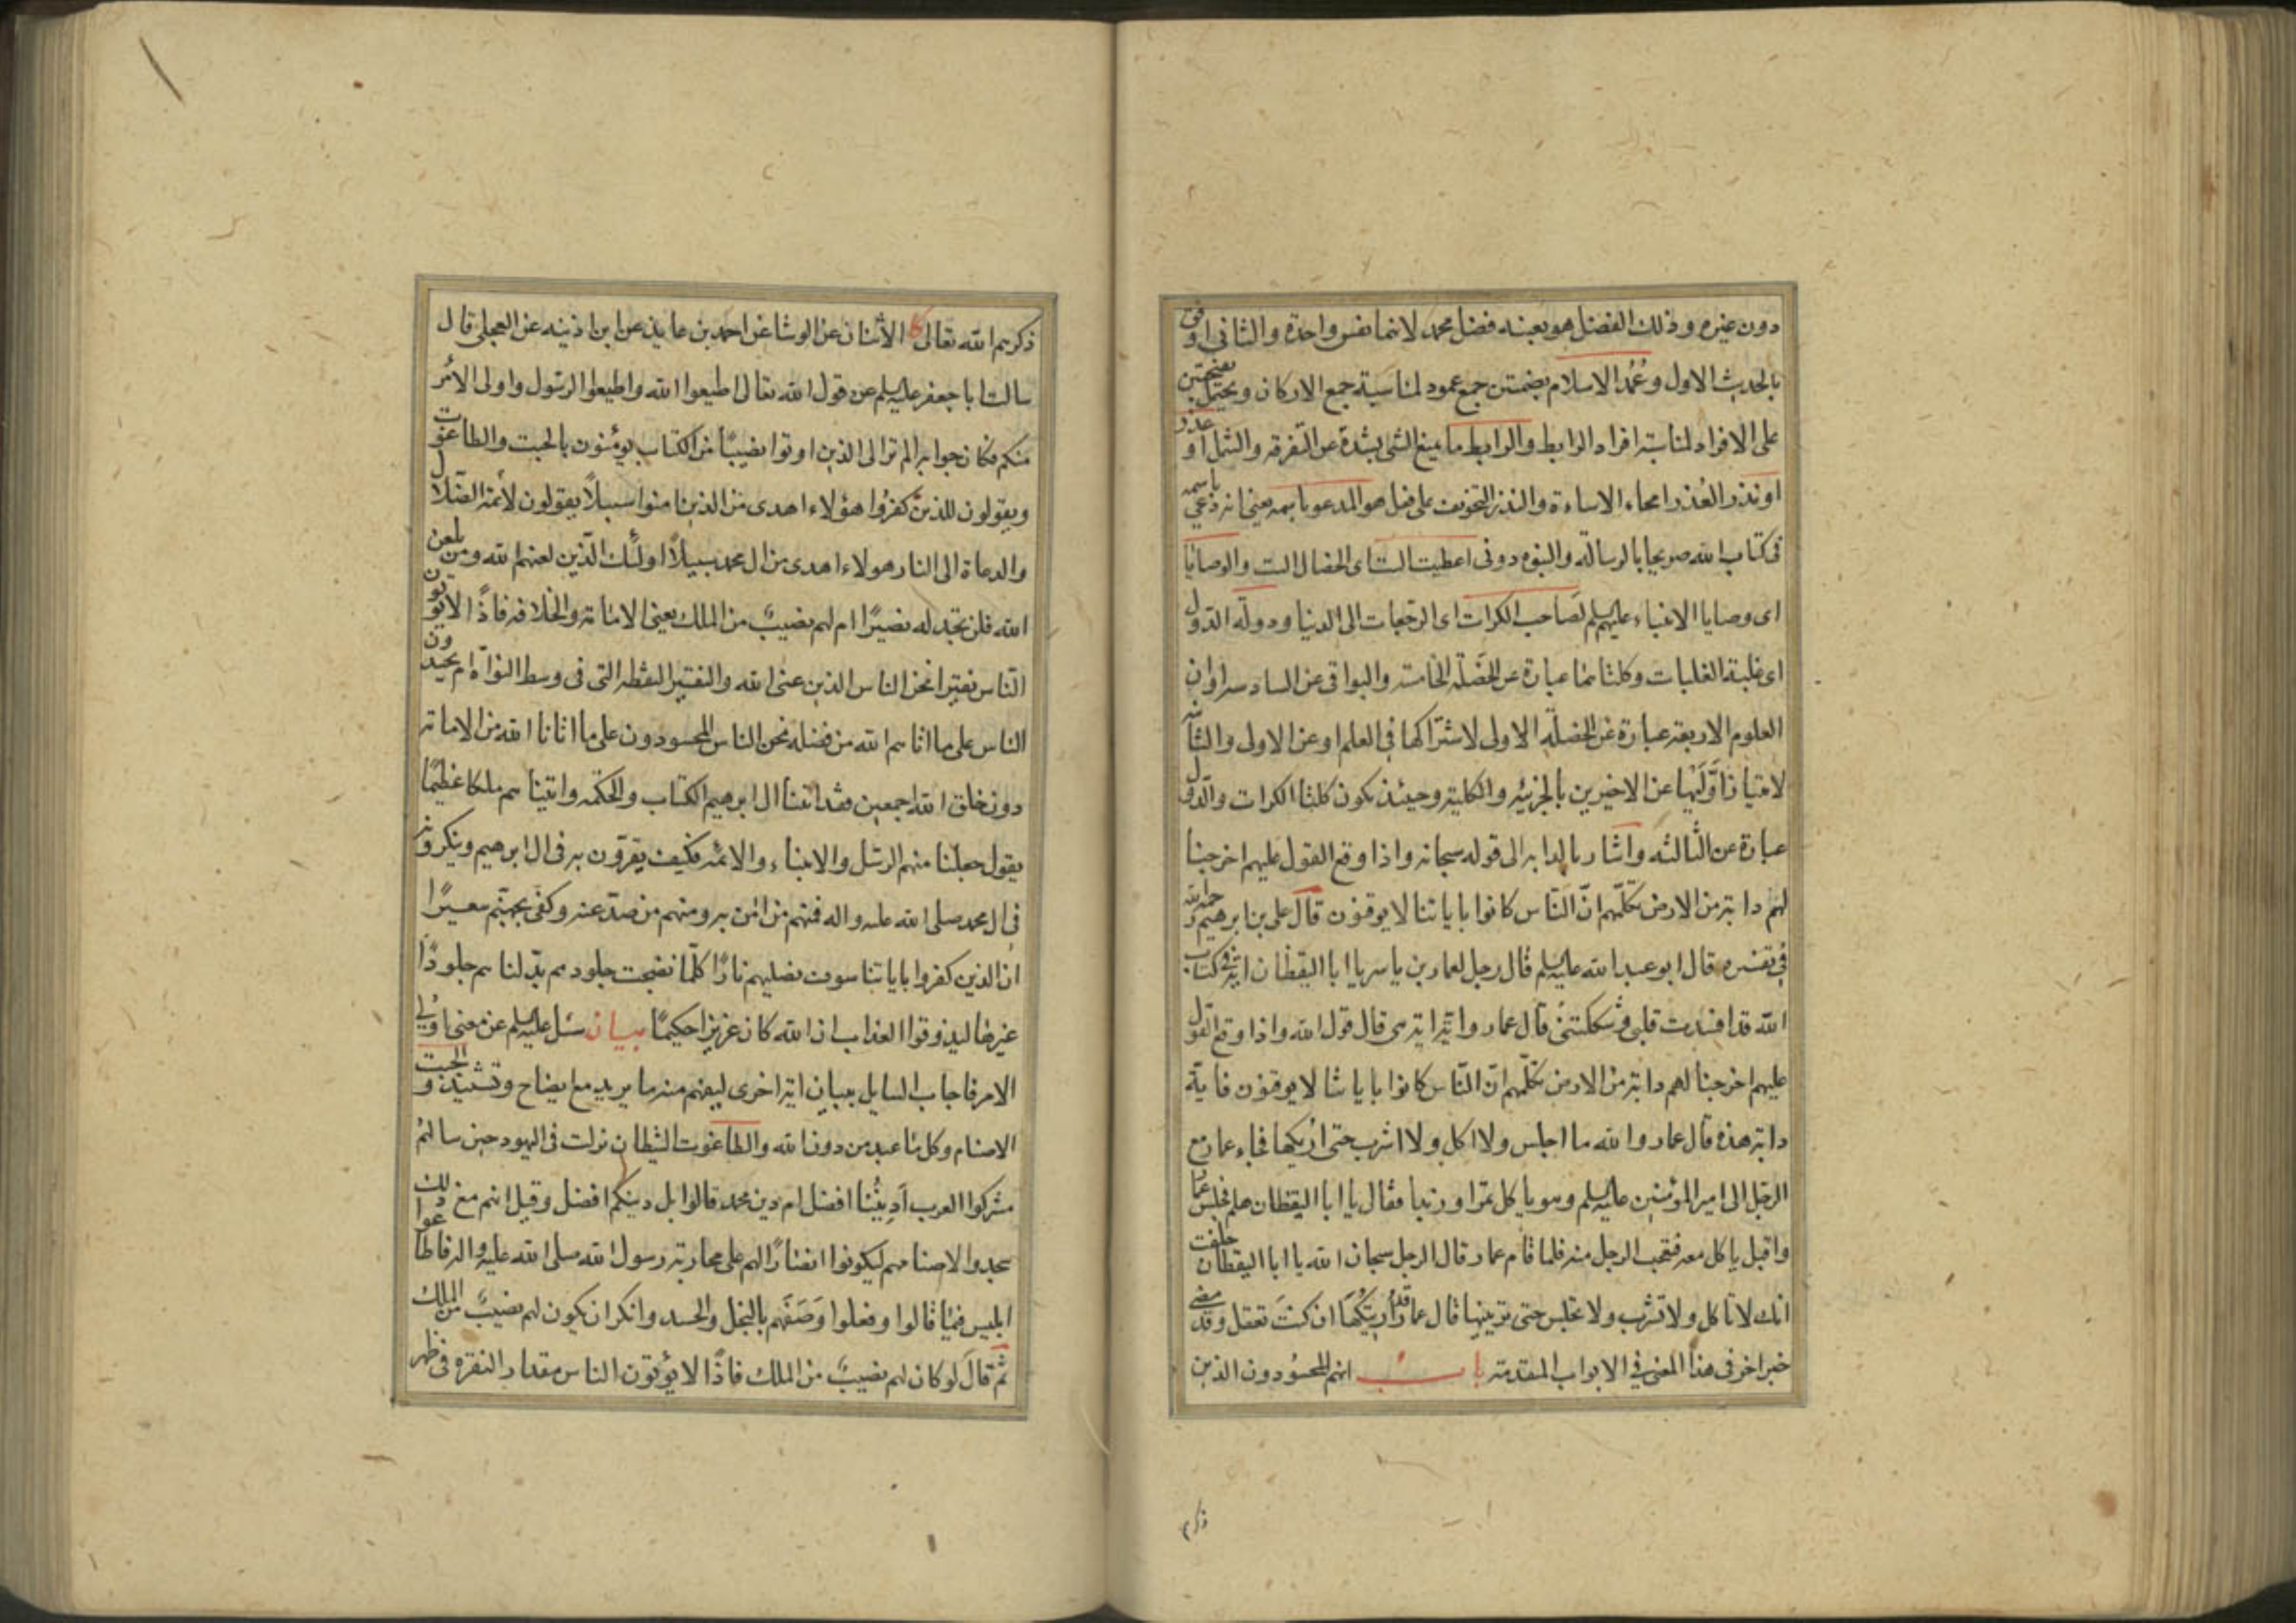 دون غيره وذلك الفضل هو بعينه فضل محمد لانهما نفس واحدة والثاني اوفق
بالحديث الاول وعُمُد الاسلام بضمتين جمع عمود لمناسبة جمع الاركان ويحتمل بفتحتين
على الافراد لمناسبة افراد الرابط والرابط ما يمنع الشي بشدة عن التفرقه والشمل او عذر
او نذر العذر امحاء الاساءة والنذر التخويف على فعل هو المدعو باسمه يعني انه دعي باسمه
في كتاب الله صريحا بالرسالة والنبوه دوني اعطيت الست اى الخصال الست والوصايا
اى وصايا الانبياء عليهم السلم لصاحب الكرات اى الرجعات الى الدنيا ودولة الدول
اى غلبة الغلبات وكلتاهما عبارة عن الخصلة الخامسة والبواقى عن السادسه او ان
العلوم الاربعة عبارة عن الخصلة الاولى لاشتراكها في العلم او عن الاولى والثانية
لامتياز اوليها عن الاخيرين بالجزئيه والكلية وحينئذ تكون كلتا الكرات والدول
عبارة عن الثالثه واشار بالدابه الى قوله سبحانه واذا وقع القول عليهم اخرجنا
لهم دابة من الارض تكلمهم انّ النّاس كانوا باياتنا لا يوقنون قال على بن ابرهيم رحمه الله
في تفسيره قال ابو عبد الله عليه السلم قال رجل لعمار بن ياسر يا ابا اليقظان اية في كتاب
الله قد افسدت قلبى وشككتنى قال عمار واية اية هى قال قول الله واذا وقع القول
عليهم اخرجنا لهم دابة من الارض تكلّمهم انّ النّاس كانوا باياتنا لا يوقنون فاية
دابة هذه قال عمار والله ما اجلس ولا اكل ولا اشرب حتى اريكها فجاء عمار مع
الرجل الى امير المؤمنين عليه السلم وهو ياكل تمرا وزبدا فقال يا ابا اليقظان هلم فجلس عمار
واقبل ياكل معه فتعجب الرجل منه فلما قام عمار قال الرجل سبحان الله يا ابا اليقظان حلفت
انك لا تاكل ولا تشرب ولا تجلس حتى ترينيها قال عمار قد اريتكها ان كنت تعقل وقد مضى
خبر اخر في هذا المعنى في الابواب المتقدمة باب انهم المحسودون الذين
ذكرهم
ذكرهم الله تعالى كا الاثنان عن الوشا عن احمد بن عايذ عن ابن اذينه عن العجلي قال
سالت ابا جعفر عليه السلم عن قول الله تعالى اطيعوا الله واطيعوا الرسول واولى الأمر
منكم فكان جوابه الم تر الى الذين اوتوا نصيبًا من الكتاب يؤمنون بالجبت والطاغوت
ويقولون للذين كفروا هؤلاء اهدى من الذين امنوا سبيلاً يقولون لأئمة الضّلال
والدعاة الى النار هولاء اهدى من ال محمد سبيلاً اولئك الّذين لعنهم الله ومن يلعن
الله فلن تجد له نصيرًا ام لهم نصيبٌ من الملك يعنى الامامة والخلافه فاذًا لا يؤتون
النّاس نقيرا نحن الناس الذين عنى الله والنقير النقطه التى فى وسط النواة ام يحسدون
الناس على ما اتاهم الله من فضله نحن الناس المحسودون على ما اتانا الله من الامامة
دون خلق الله اجمعين فقد اتينا ال ابرهيم الكتاب والحكمه واتيناهم ملكا عظيمًا
يقول جعلنا منهم الرسل والانبياء والائمّه فكيف يقرّون به فى ال ابرهيم وينكرونه
فى ال محمد صلى الله عليه واله فمنهم من امن به ومنهم من صدّ عنه وكفى بجهنّم سعيرًا
انّ الذين كفروا باياتنا سوف نصليهم نارًا كلّما نضجت جلودهم بدّلناهم جلودًا
غيرها ليذوقوا العذاب ان الله كان عزيزا حكيمًا بيان سئل عليه السلم عن معنى اولي
الامر فاجاب السايل ببيان اية اخرى ليفهم منه ما يريد مع ايضاح وتشييد والجبت
الاصنام وكل ما عبد من دون الله والطاغوت الشيطان نزلت فى اليهود حين سالهم
مشركوا العرب أديننا افضل ام دين محمد قالوا بل دينكم افضل وقيل انهم مع ذلك
سجدوا لاصنامهم ليكونوا انصارًا لهم على محاربة رسول الله صلى الله عليه واله فاطاعوا
ابليس فيما قالوا وفعلوا وَصَفَهم بالبخل والحسد وانكر ان يكون لهم نصيبٌ من الملك
ثم قال لو كان لهم نصيبٌ من الملك فاذًا لا يؤتون الناس مقدار النقره فى ظهر